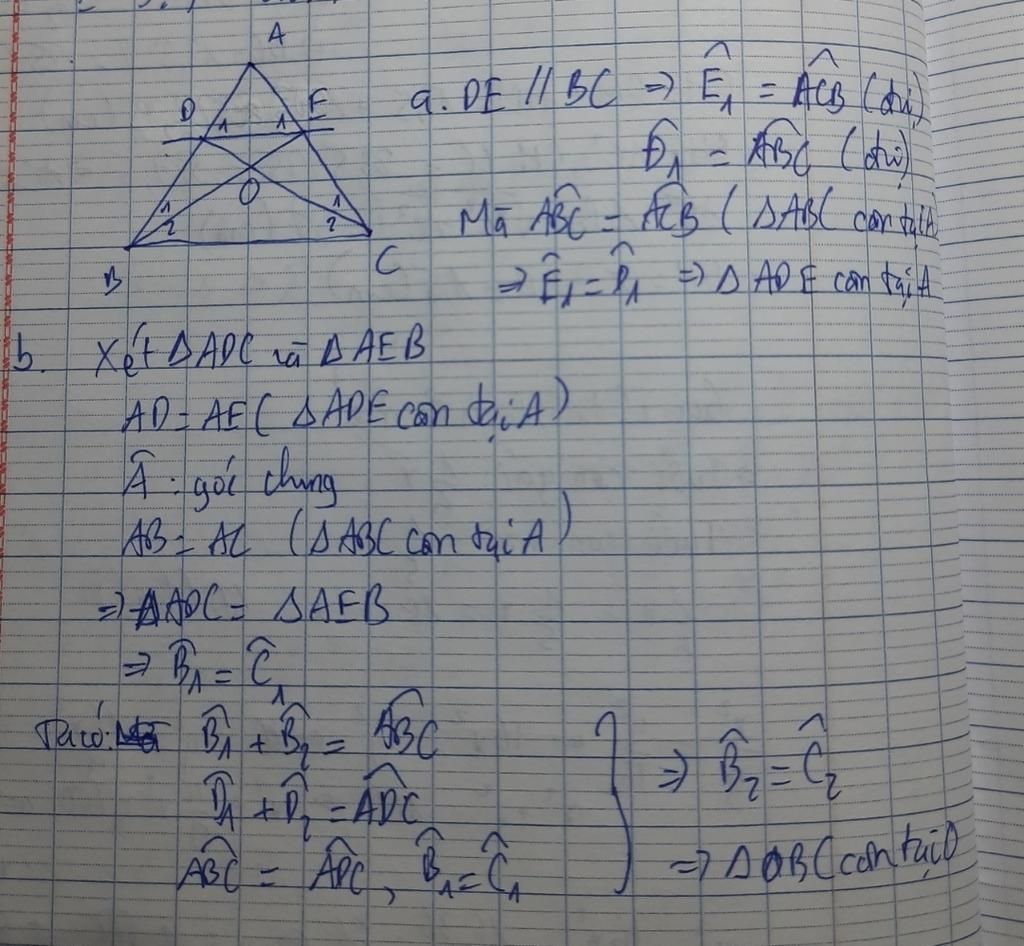 A
D E
1 1
O
1 2 1 2
B C
a. DE // BC => Ê₁ = ACB (đvị)
D̂₁ = ABC (đvị)
Mà ABC = ACB (ΔABC cân tại A
=> Ê₁ = D̂₁ => Δ ADE cân tại A
b. Xét ΔADC và ΔAEB
AD = AE ( ΔADE cân tại A)
Â : góc chung
AB = AC (ΔABC cân tại A)
=> ΔADC = ΔAEB
=> B̂₁ = Ĉ₁
Ta có: B̂₁ + B̂₂ = ABC
D̂₁ + D̂₂ = ADC
ABC = ADC, B̂₁ = Ĉ₁
=> B̂₂ = Ĉ₂
=> ΔOBC cân tại O